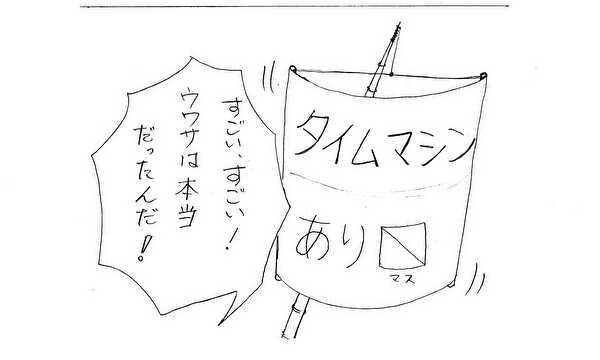 すごい、すごい!
ウワサは本当
だったんだ!
タイムマシン
あり〼
マス